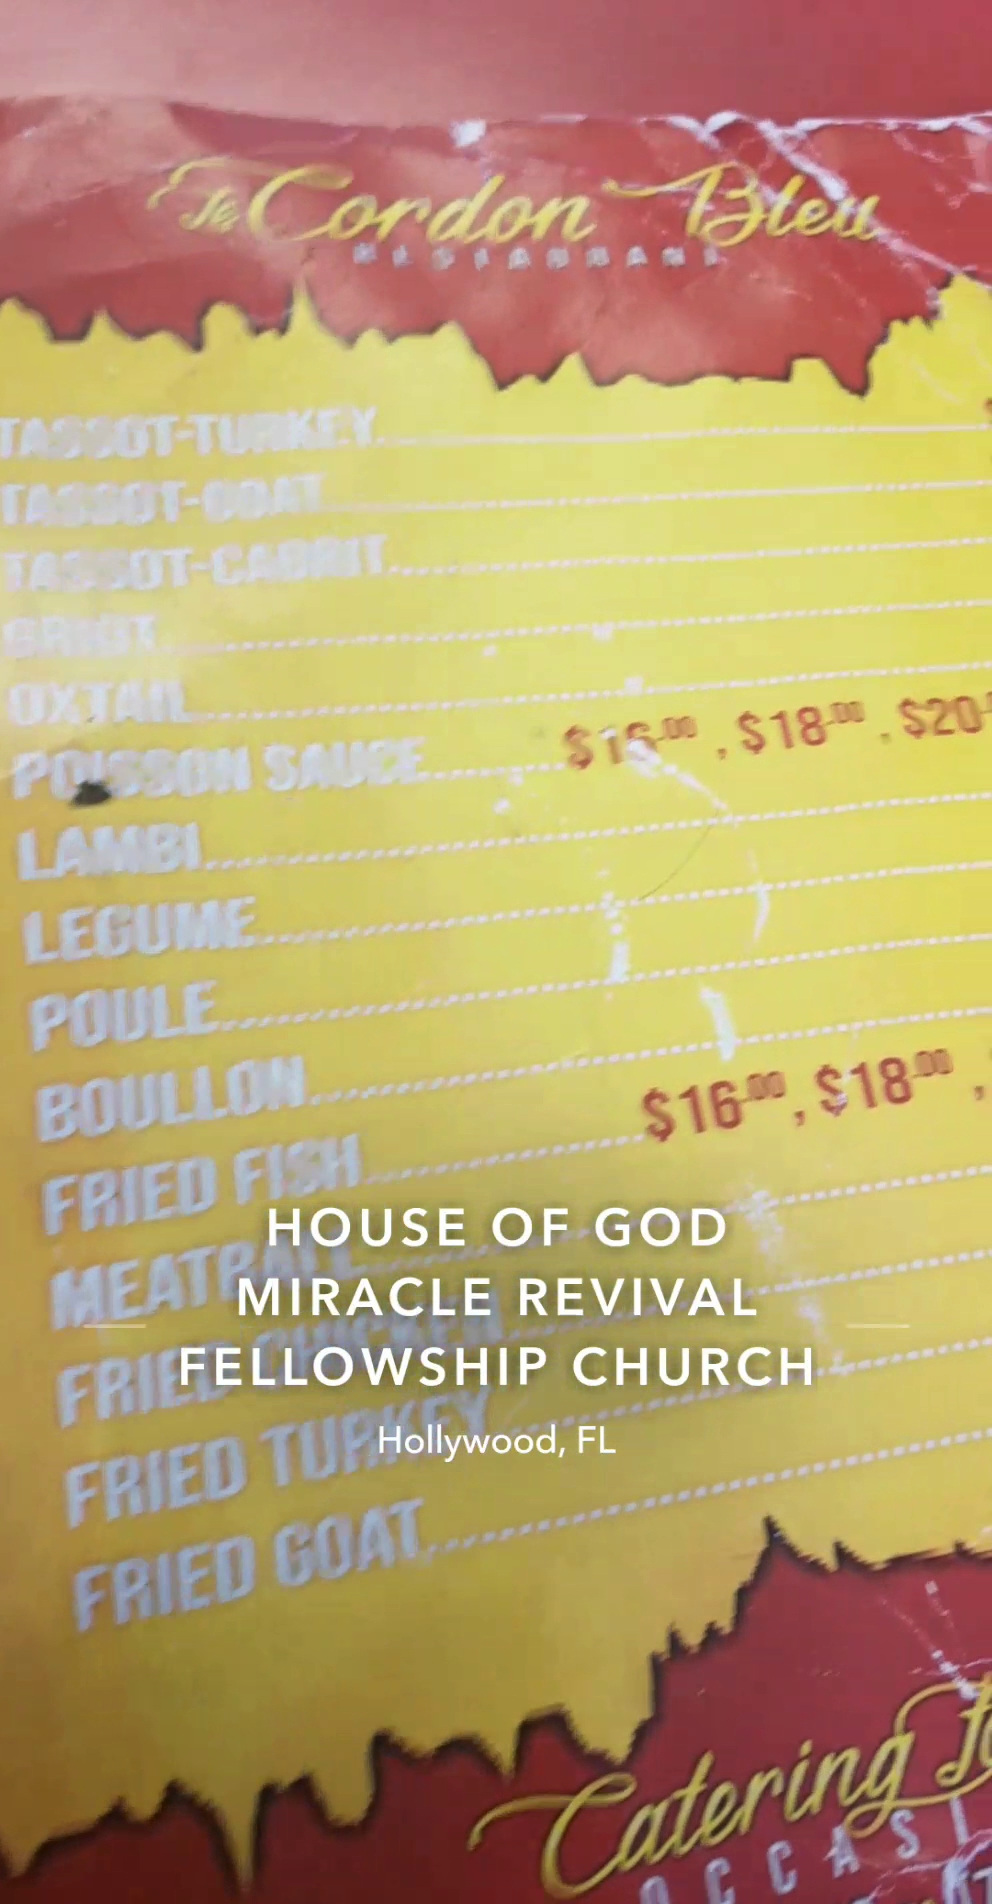 Le Cordon Bleu
RESTAURANT
TASSOT-TURKEY
TASSOT-GOAT
TASSOT-CABRIT
GRIOT
OXTAIL
POISSON SAUCE $16.00, $18.00, $20
LAMBI
LEGUME
POULE
BOULLON
FRIED FISH $16.00, $18.00,
MEATBALL
FRIED CHICKEN
FRIED TURKEY
FRIED GOAT
HOUSE OF GOD
MIRACLE REVIVAL
FELLOWSHIP CHURCH
Hollywood, FL
Catering
OCCASI